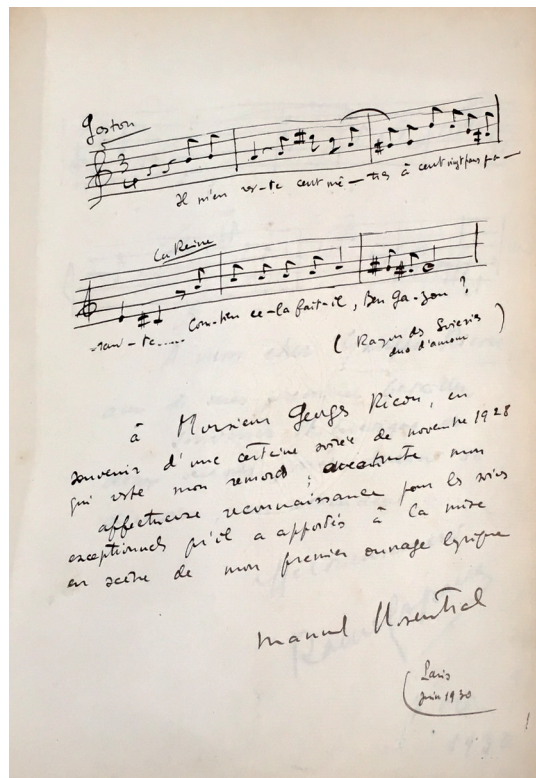 Gaston
Il m'en res-te cent mè-tres à cent vingt francs qua-
La Reine
-ran-te..... Com-bien ce-la fait-il, Ben Ga-zon ?
( Rayon des Soieries
duo d'amour )
à Monsieur Georges Ricou, en
souvenir d'une certaine soirée de novembre 1928
qui reste mon remords ; avec toute mon
affectueuse reconnaissance pour les soins
exceptionnels qu'il a apportés à la mise
en scène de mon premier ouvrage lyrique
Manuel Rosenthal
Paris
juin 1930